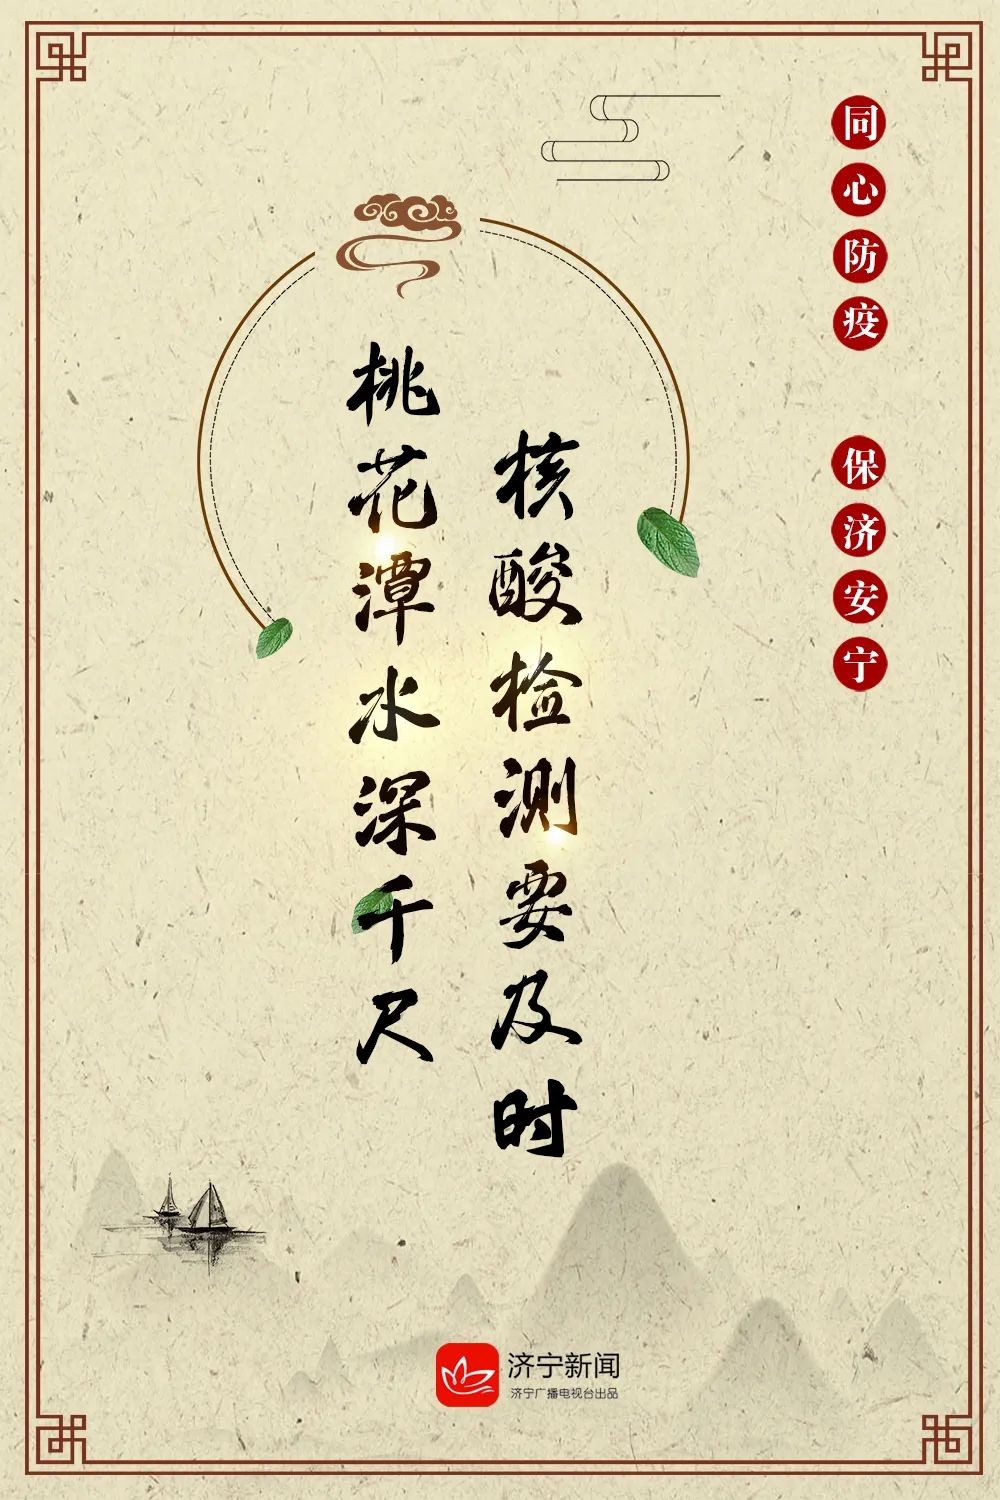 同心防疫 保济安宁
桃花潭水深千尺
核酸检测要及时
济宁新闻
济宁广播电视台出品